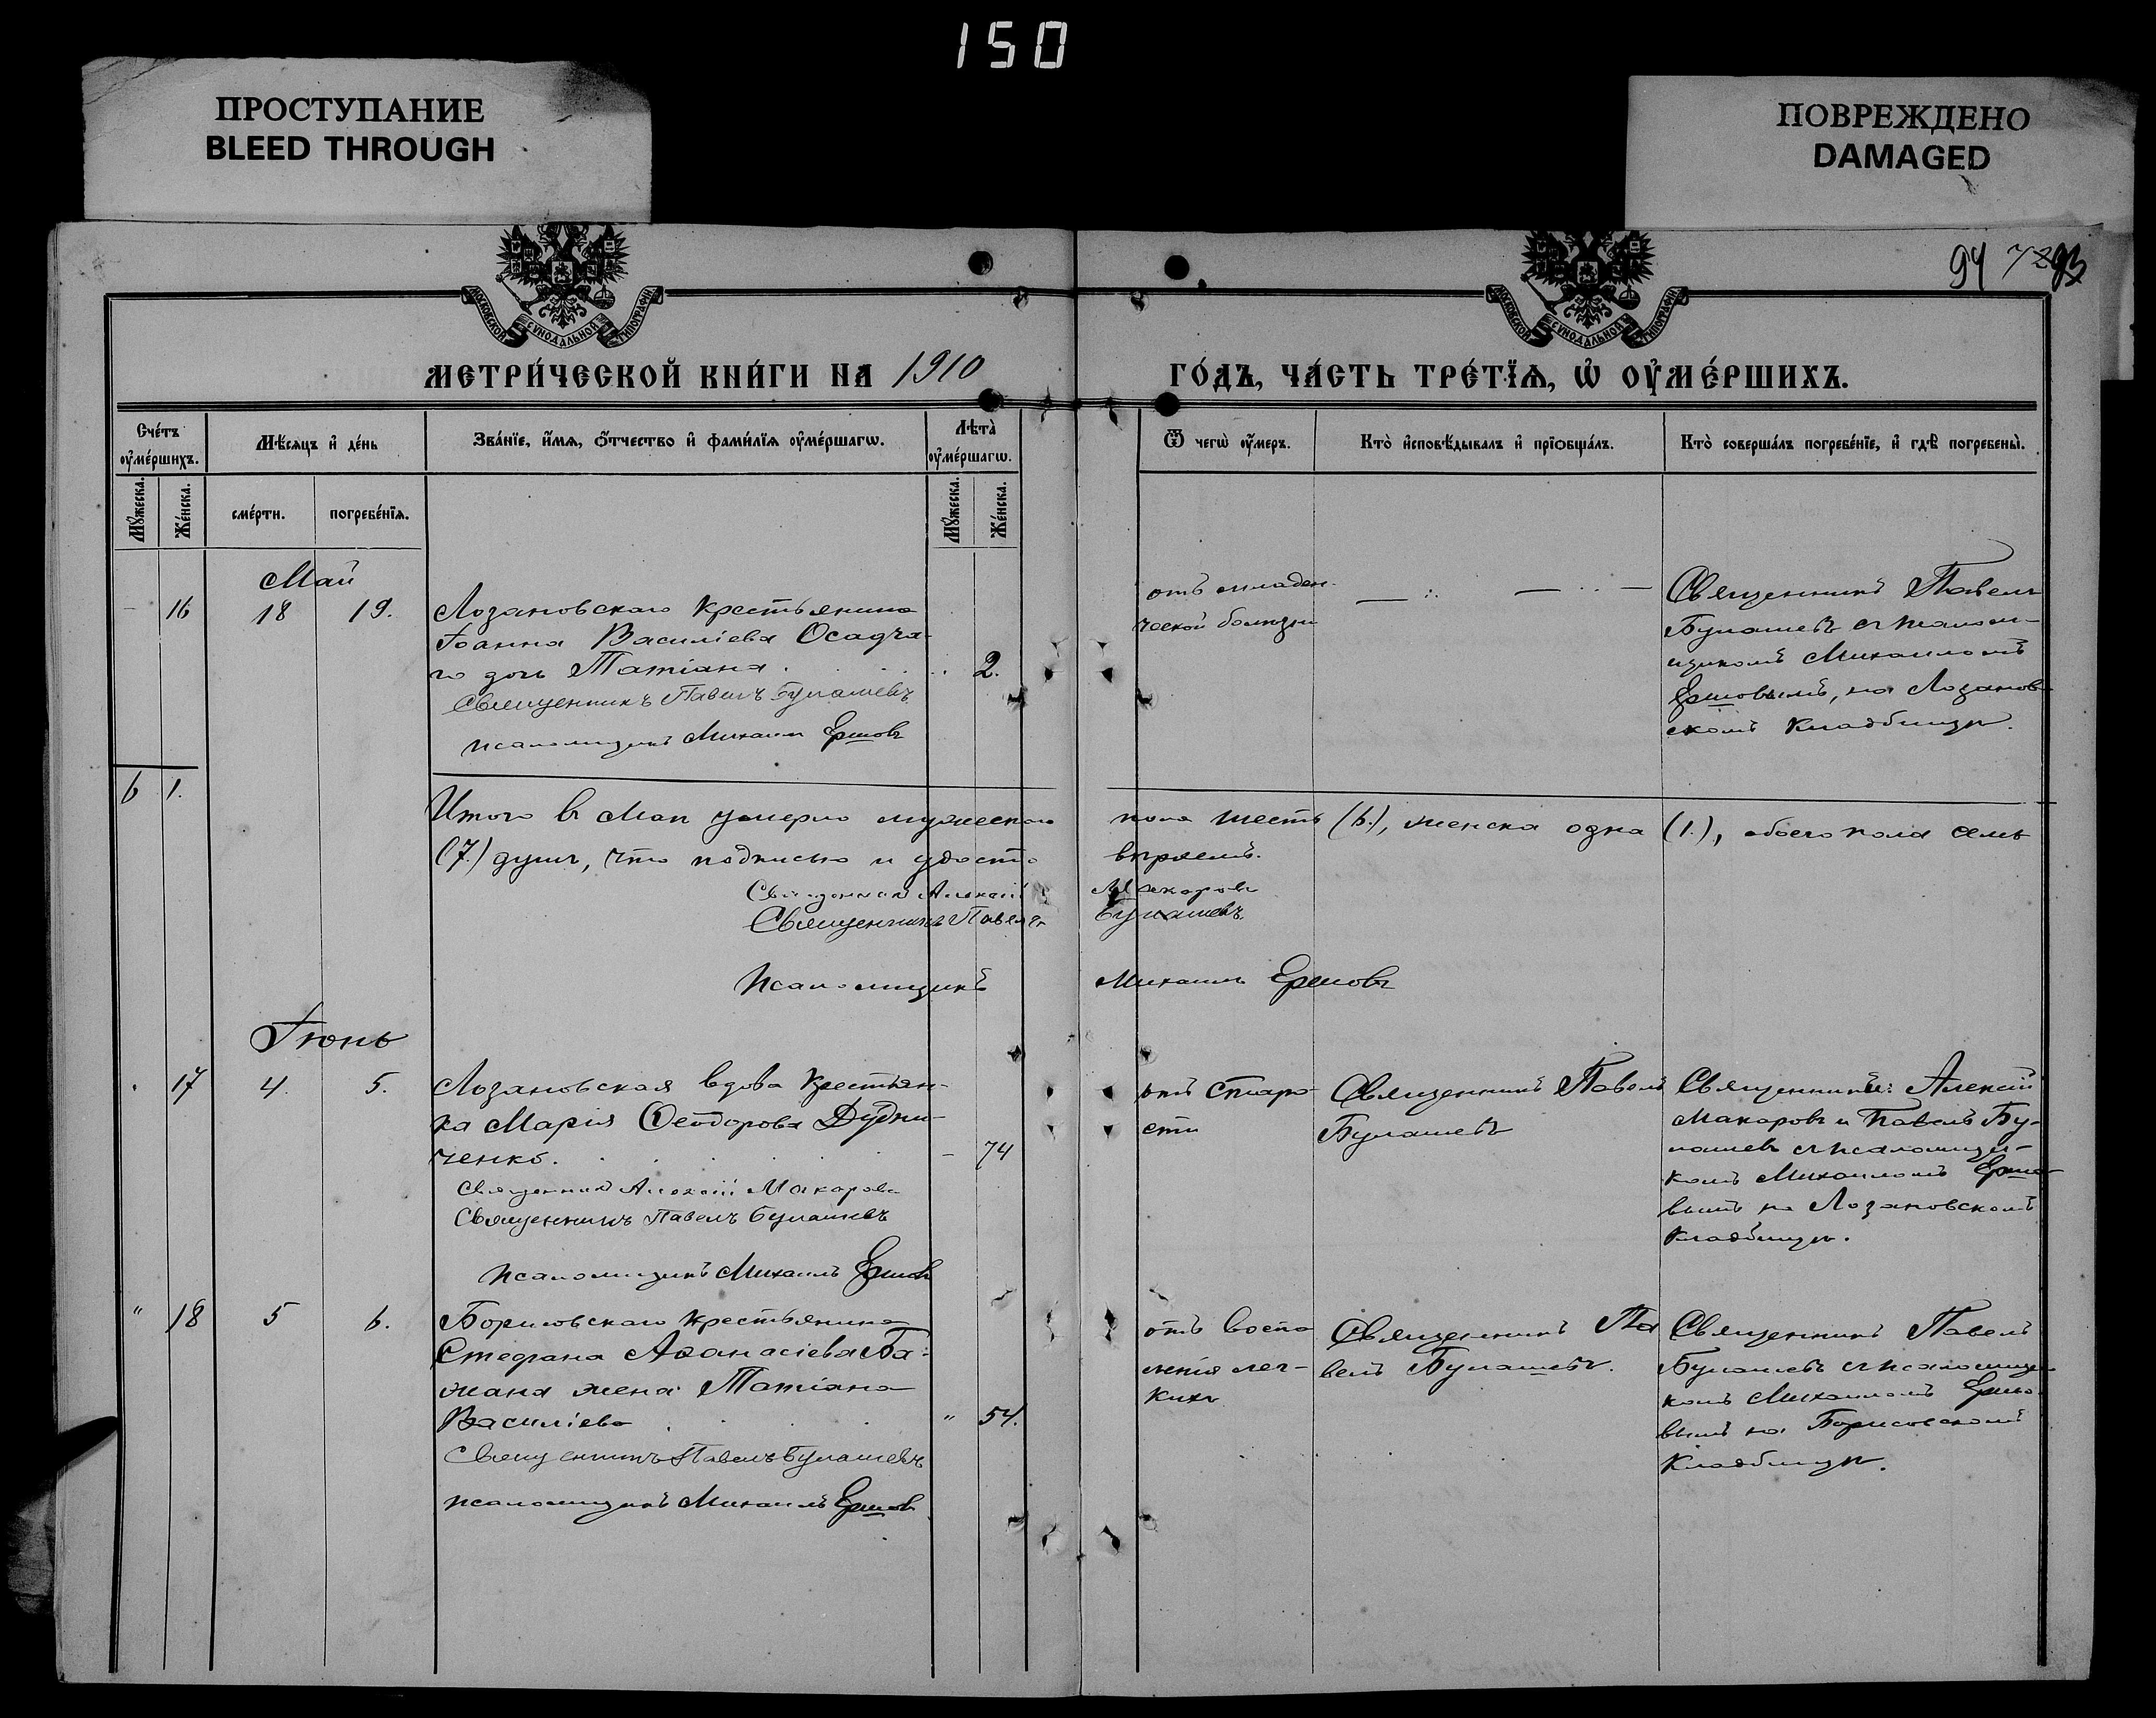 150
ПРОСТУПАНИЕ
BLEED THROUGH
ПОВРЕЖДЕНО
DAMAGED
94
МОСКОВСКОЙ СѴНОДАЛЬНОЙ ТИПОГРАФІИ
МОСКОВСКОЙ СѴНОДАЛЬНОЙ ТИПОГРАФІИ
МЕТРИ́ЧЕСКОЙ КНИ́ГИ НА 1910 ГО́ДЪ, ЧА́СТЬ ТРЕ́ТЇѦ, Ѡ҆ ОУ҆МЕ́РШИХЪ.
Сче́тъ оу҆ме́ршихъ.
Мѣ́сѧцъ и҆ де́нь
Зва́нїе, и҆́мѧ, ѻ҆́тчество и҆ фами́лїѧ оу҆ме́ршагѡ.
Лѣ́та оу҆ме́ршагѡ.
Ѿ чегѡ̀ оу҆́меръ.
Кто̀ и҆сповѣ́дывалъ и҆ прїѡбща́лъ.
Кто̀ соверша́лъ погребе́нїе, и҆ гдѣ̀ погребены̀.
Мꙋ́жеска.
Же́нска.
сме́рти.
погребе́нїѧ.
Мꙋ́жеска.
Же́нска.
Май
16 18 19.
Лозановскаго крестьянина
Іоанна Василіева Осадча-
го дочь Татіана
2.
Священникъ Павелъ Булашевъ
Псаломщикъ Михаилъ Ершовъ
отъ младен-
ческой болѣзни
Священникъ Павелъ
Булашевъ съ псалом-
щикомъ Михаиломъ
Ершовымъ, на Лозанов-
скомъ кладбищѣ.
6 1.
Итого въ Маѣ умерло мужескаго пола шесть (6.), женска одна (1.), обоего пола семь
(7.) душъ, что подписью и удосто вѣряемъ.
Священникъ Алексій Макаровъ
Священникъ Павелъ Булашевъ
Псаломщикъ Михаилъ Ершовъ
Іюнь
17 4. 5.
Лозановская вдова крестьян-
ка Марія Ѳеодорова Дудни-
ченко.
74
Священникъ Алексій Макаровъ
Священникъ Павелъ Булашевъ
Псаломщикъ Михаилъ Ершовъ
отъ старо-
сти
Священникъ Павелъ
Булашевъ
Священники: Алексій
Макаровъ и Павелъ Бу-
лашевъ съ псаломщи-
комъ Михаиломъ Ершо-
вымъ на Лозановскомъ
кладбищѣ.
" 18 5 6.
Борисовскаго крестьянина
Стефана Аѳанасіева Ба-
жана жена Татіана
Василіева
" 54.
Священникъ Павелъ Булашевъ
Псаломщикъ Михаилъ Ершовъ
отъ воспа
ленія лег-
кихъ
Священникъ Па
велъ Булашевъ.
Священникъ Павелъ
Булашевъ съ псаломщи-
комъ Михаиломъ Ершо-
вымъ на Борисовскомъ
кладбищѣ.